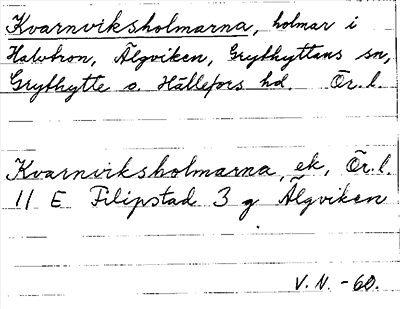 Kvarnviksholmarna, holmar i
Halvtron, Älgviken, Grythyttans sn,
Grythytte o. Hällefors hd. Ör. l.
Kvarnviksholmarna, ek, Ör. l.
11 E Filipstad 3 g Älgviken
V. N. -60.